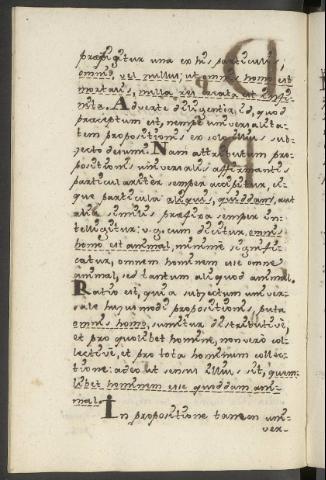 præfigitur una ex his particulis,
omnis, vel nullus, ut omnis homo est
mortalis, nulla res creata est infi-
nita. Adverte diligenter id, quod
præceptum est, nempe universalita-
tem propositionis ex solo illius sub-
jecto desumi. Nam attributum pro-
positionis universalis affirmantis
particulariter semper accipitur, ei-
que particula aliquis, quiddam, aut
alia similis præfixa semper in-
telligitur: v. g. cum dicitur, omnis
homo est animal, minime signifi-
catur, omnem hominem esse omne
animal, sed tantum aliquod animal.
Ratio est, quia subjectum univer-
sale hujusmodi propositionis, puta
omnis homo, sumitur distributive,
et pro quolibet homine, non vero col-
lective, et pro tota hominum collec-
tione: adeo ut sensus illius sit, quem-
libet hominem esse quoddam ani-
mal.
In propositione tamen uni-
ver-